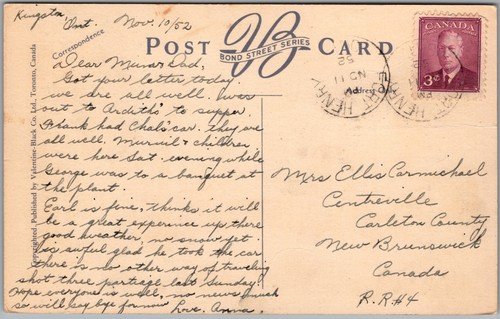 Kingston Ont. Nov. 10/52
Correspondence
POST VB CARD
BOND STREET SERIES
Address
CANADA
POSTES POSTAGE
3¢
FORT HENRY
NO 11
52
PM
Copyrighted, Published by Valentine-Black Co. Ltd., Toronto, Canada
Dear Mum & Dad,
Got your letter today.
we are all well. was
out to Ardith's to supper.
Frank had Chals car. they are
all well. Muriel & children
were here Sat. evening while
George was to a banquet at
the plant.
Earl is fine. Thinks it will
be a great experience up there
good weather, no snow yet.
is awful glad he took the car
there is no other way of traveling
shot three partiege last Sunday.
Hope everyone is well, no news much
so will say bye for now
Love. Anna.
Mrs Ellis Carmichael
Centreville
Carleton County
New Brunswick
Canada
R.R#4